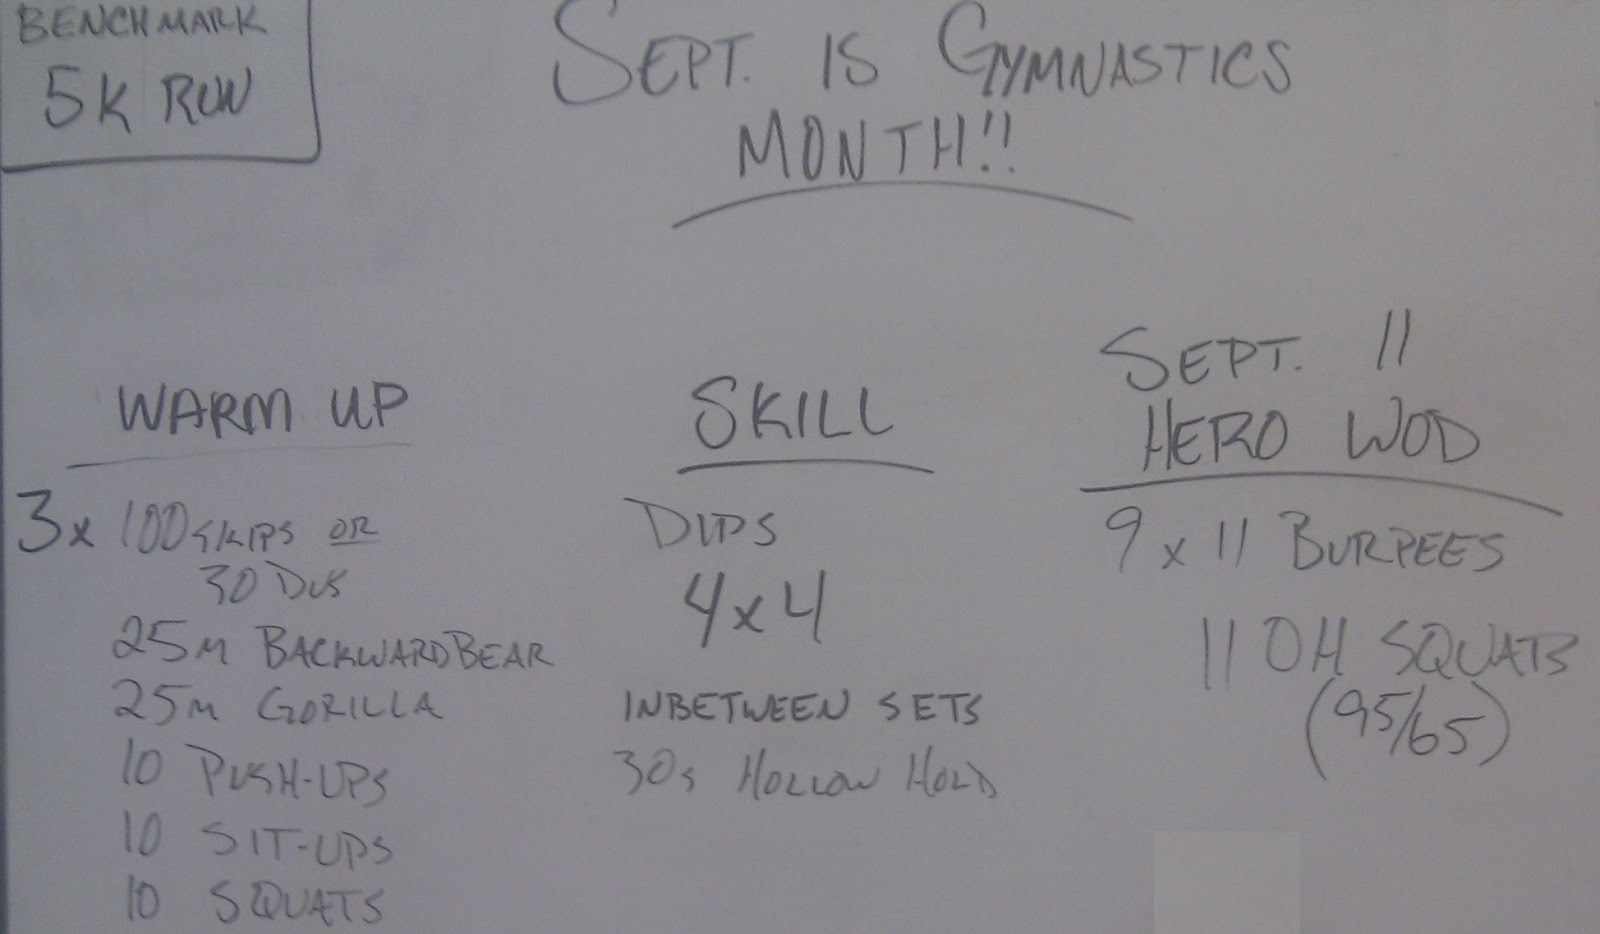 BENCHMARK
5K RUN
SEPT. IS GYMNASTICS
MONTH!!
WARM UP
3x 100 SKIPS OR
30 DUS
25M BACKWARD BEAR
25M GORILLA
10 PUSH-UPS
10 SIT-UPS
10 SQUATS
SKILL
DIPS
4x4
INBETWEEN SETS
30s HOLLOW HOLD
SEPT. 11
HERO WOD
9 x 11 BURPEES
11 OH SQUATS
(95/65)